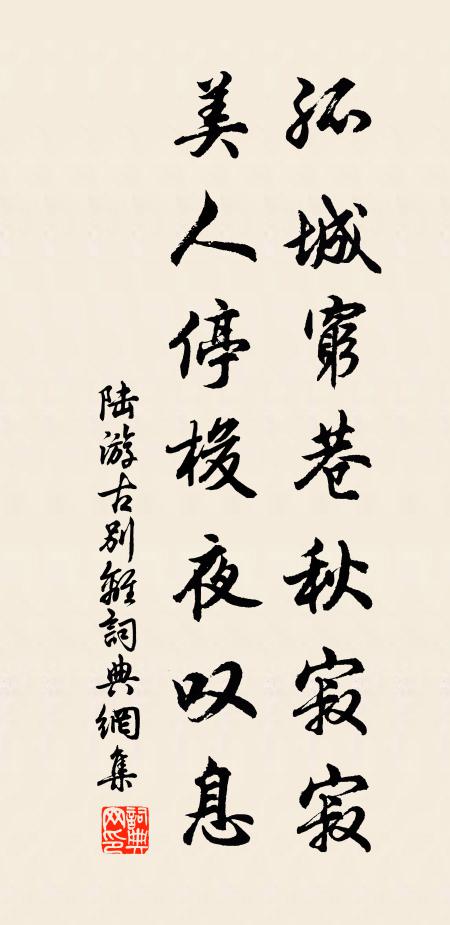 孤城窮巷秋寂寂
美人停梭夜叹息
陆游古别離詞典網集
詞典网印